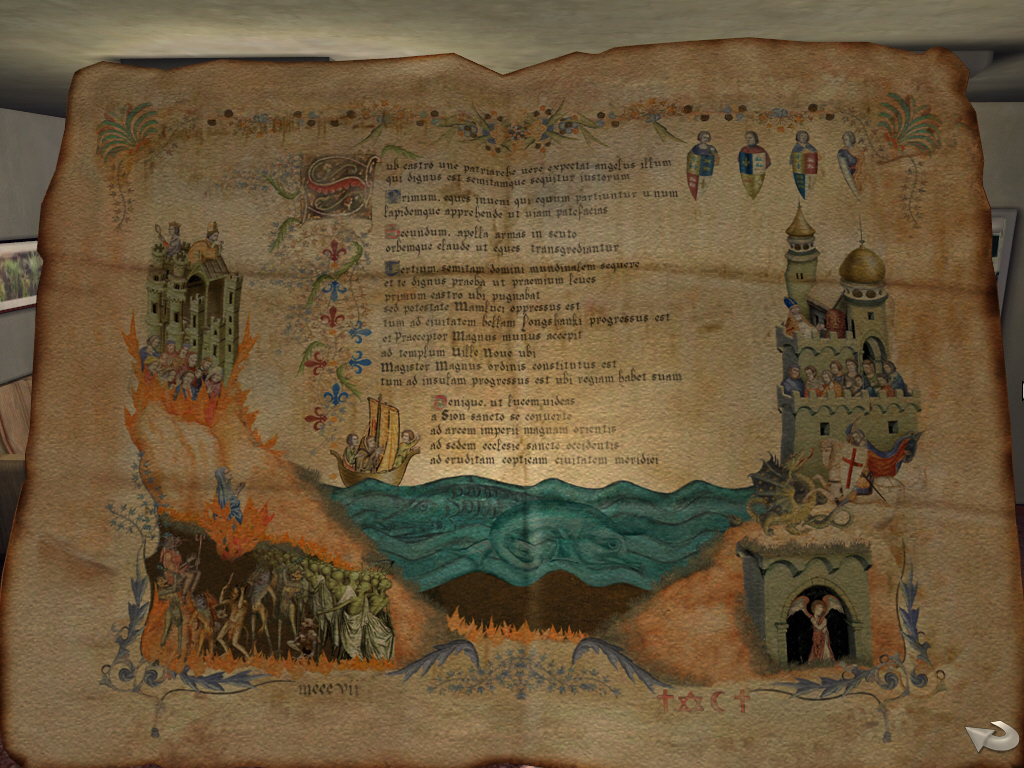 Sub castro une patriarche uere expectat angelus illum
qui dignus est semitamque sequitur iustorum
Primum, eques inueni qui equum partiuntur unum
lapidemque apprehende ut uiam patefacias
Secundum, apella armas in scuto
orbemque claude ut eques transgrediantur
Tertium, semitam domini mundinalem sequere
et te dignus praeba ut praemium feues
primum castro ubi pugnabat
sed potestate Mamluci oppressus est
tum ad ciuitatem bellam Longshanki progressus est
et Praeceptor Magnus munus accepit
ad templum Uille Noue ubi
Magister Magnus ordinis constitutus est
tum ad insulam progressus est ubi regiam habet suam
Denique, ut lucem uideas
a Sion sancto se conuerte
ad arcem imperii magnam orientis
ad sedem ecclesie sancte occidentis
ad eruditam copticam ciuitatem meridiei
mccc vii